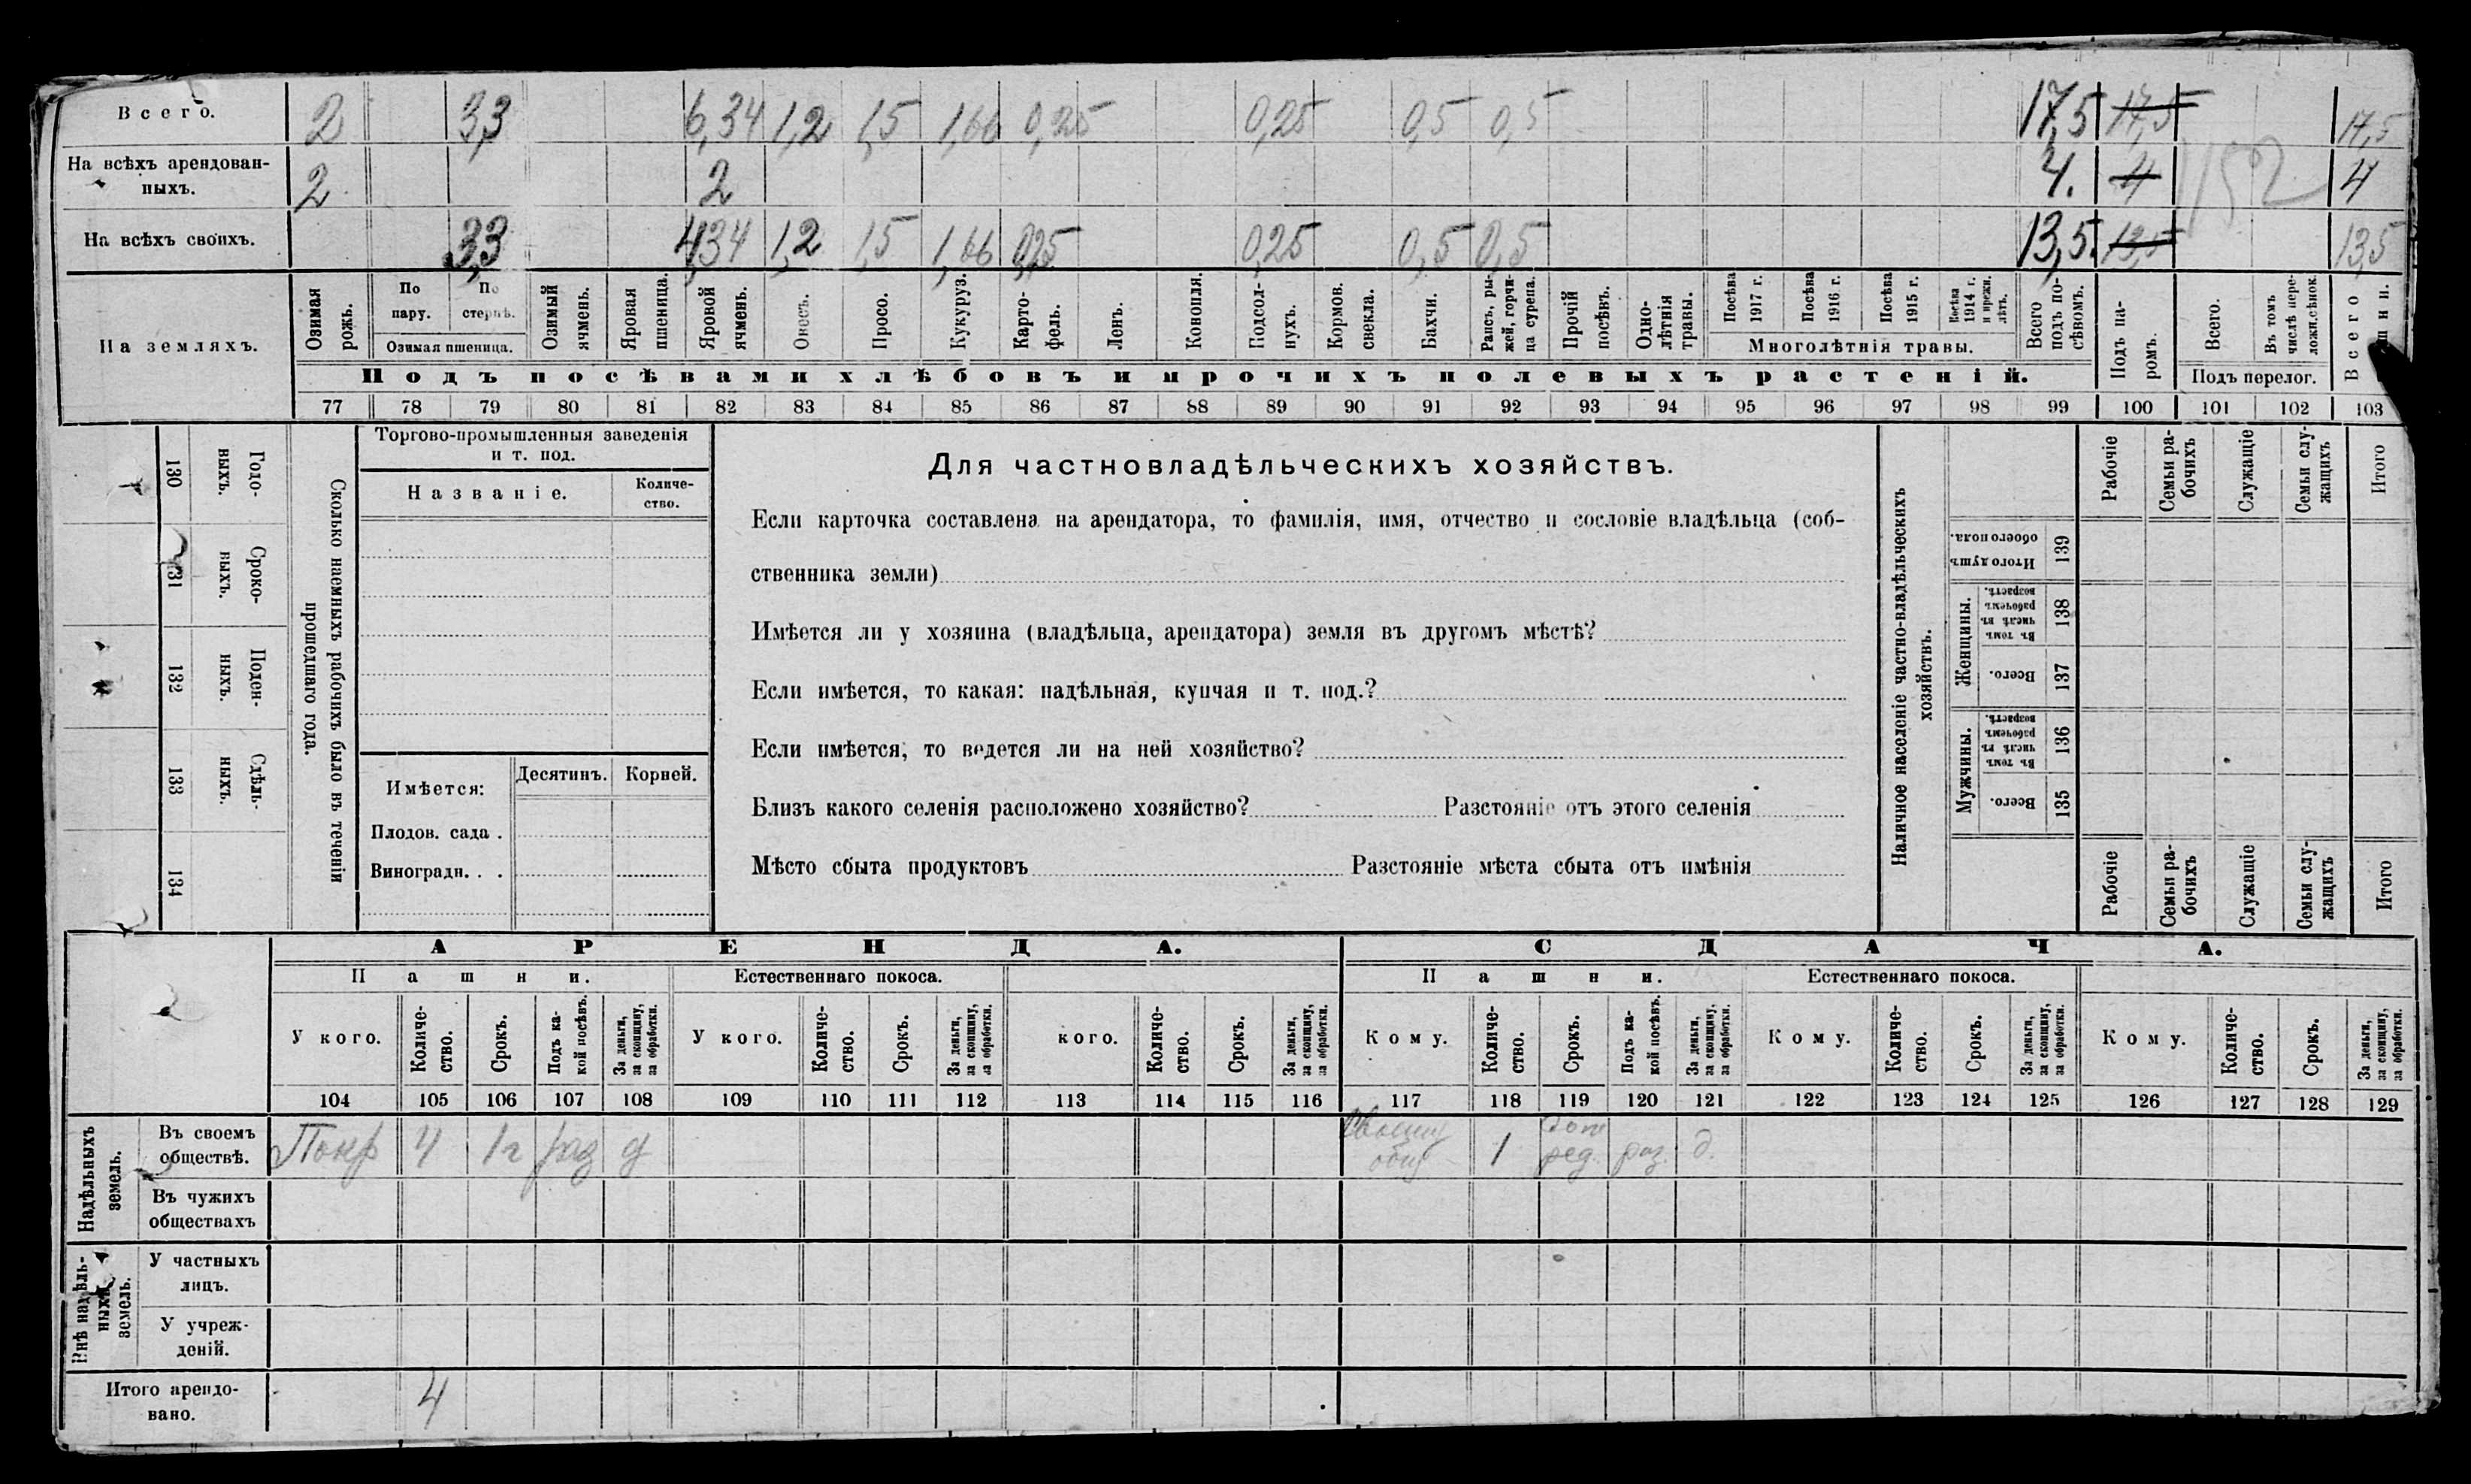 Всего. 2 3,3 6,34 1,2 1,5 1,66 0,25 0,25 0,5 0,5 17,5 17,5 17,5
На всѣхъ арендован-
ныхъ. 2 2 4. 4 4
На всѣхъ своихъ. 3,3 4,34 1,2 1,5 1,66 0,25 0,25 0,5 0,5 13,5. 13,5 13,5
На земляхъ.
Озимая рожь.
По пару.
По стернѣ.
Озимая пшеница.
Озимый ячмень.
Яровая пшеница.
Яровой ячмень.
Овесъ.
Просо.
Кукуруз.
Карто-
фель.
Ленъ.
Конопля.
Подсол-
нухъ.
Кормов. свекла.
Бахчи.
Рапсъ, ры-
жей, горчи-
ца сурепа.
Прочій посѣвъ.
Одно-
лѣтнія
травы.
Посѣва 1917 г.
Посѣва 1916 г.
Посѣва 1915 г.
Посѣва 1914 г. и прежн. лѣтъ.
Многолѣтнія травы.
Всего подъ по-
сѣвомъ.
Подъ па-
ромъ.
Всего.
Въ томъ числѣ пере-
ложн.сѣнок.
Подъ перелог.
Всего
Подъ посѣвами хлѣбовъ и прочихъ полевыхъ растеній.
77 78 79 80 81 82 83 84 85 86 87 88 89 90 91 92 93 94 95 96 97 98 99 100 101 102 103
130 Годо-
ныхъ.
131 Сроко-
ныхъ.
132 Поден-
ныхъ.
133 Сдѣль-
ныхъ.
134
Сколько наемныхъ рабочихъ было въ теченіи
прошедшаго года.
Торгово-промышленныя заведенія
и т. под.
Названіе.
Количе-
ство.
Имѣется: Десятинъ. Корней.
Плодов. сада .
Виноградн. . .
Для частновладѣльческихъ хозяйствъ.
Если карточка составлена на арендатора, то фамилія, имя, отчество и сословіе владѣльца (соб-
ственника земли)
Имѣется ли у хозяина (владѣльца, арендатора) земля въ другомъ мѣстѣ?
Если имѣется, то какая: надѣльная, купчая и т. под.?
Если имѣется, то ведется ли на ней хозяйство?
Близъ какого селенія расположено хозяйство? Разстояніе отъ этого селенія
Мѣсто сбыта продуктовъ Разстояніе мѣста сбыта отъ имѣнія
Наличное населеніе частно-владѣльческихъ
хозяйствъ.
Итого душъ обоего пола. 139
Женщины.
Въ томъ числѣ въ рабочемъ возрастѣ. 138
Всего. 137
Мужчины.
Въ томъ числѣ въ рабочемъ возрастѣ. 136
Всего. 135
Рабочіе
Семьи ра-
бочихъ
Служащіе
Семьи слу-
жащихъ
Итого
Рабочіе
Семьи ра-
бочихъ
Служащіе
Семьи слу-
жащихъ
Итого
АРЕНДА. СДАЧА.
Пашни. Естественнаго покоса. Пашни. Естественнаго покоса.
У кого.
Количе-
ство.
Срокъ.
Подъ ка-
кой посѣвъ.
За деньги,
за скопщину,
за обработки.
У кого.
Количе-
ство.
Срокъ.
За деньги,
за скопщину,
за обработки.
кого.
Количе-
ство.
Срокъ.
За деньги,
за скопщину,
за обработки.
Кому.
Количе-
ство.
Срокъ.
Подъ ка-
кой посѣвъ.
За деньги,
за скопщину,
за обработки.
Кому.
Количе-
ство.
Срокъ.
За деньги,
за скопщину,
за обработки.
Кому.
Количе-
ство.
Срокъ.
За деньги,
за скопщину,
за обработки.
104 105 106 107 108 109 110 111 112 113 114 115 116 117 118 119 120 121 122 123 124 125 126 127 128 129
Надѣльныхъ
земель.
Въ своемъ
обществѣ. 4 1 г раз д 1 раз. д.
Въ чужихъ
обществахъ
Внѣ надѣль-
ныхъ
земель.
У частныхъ
лицъ.
У учреж-
деній.
Итого арендо-
вано. 4